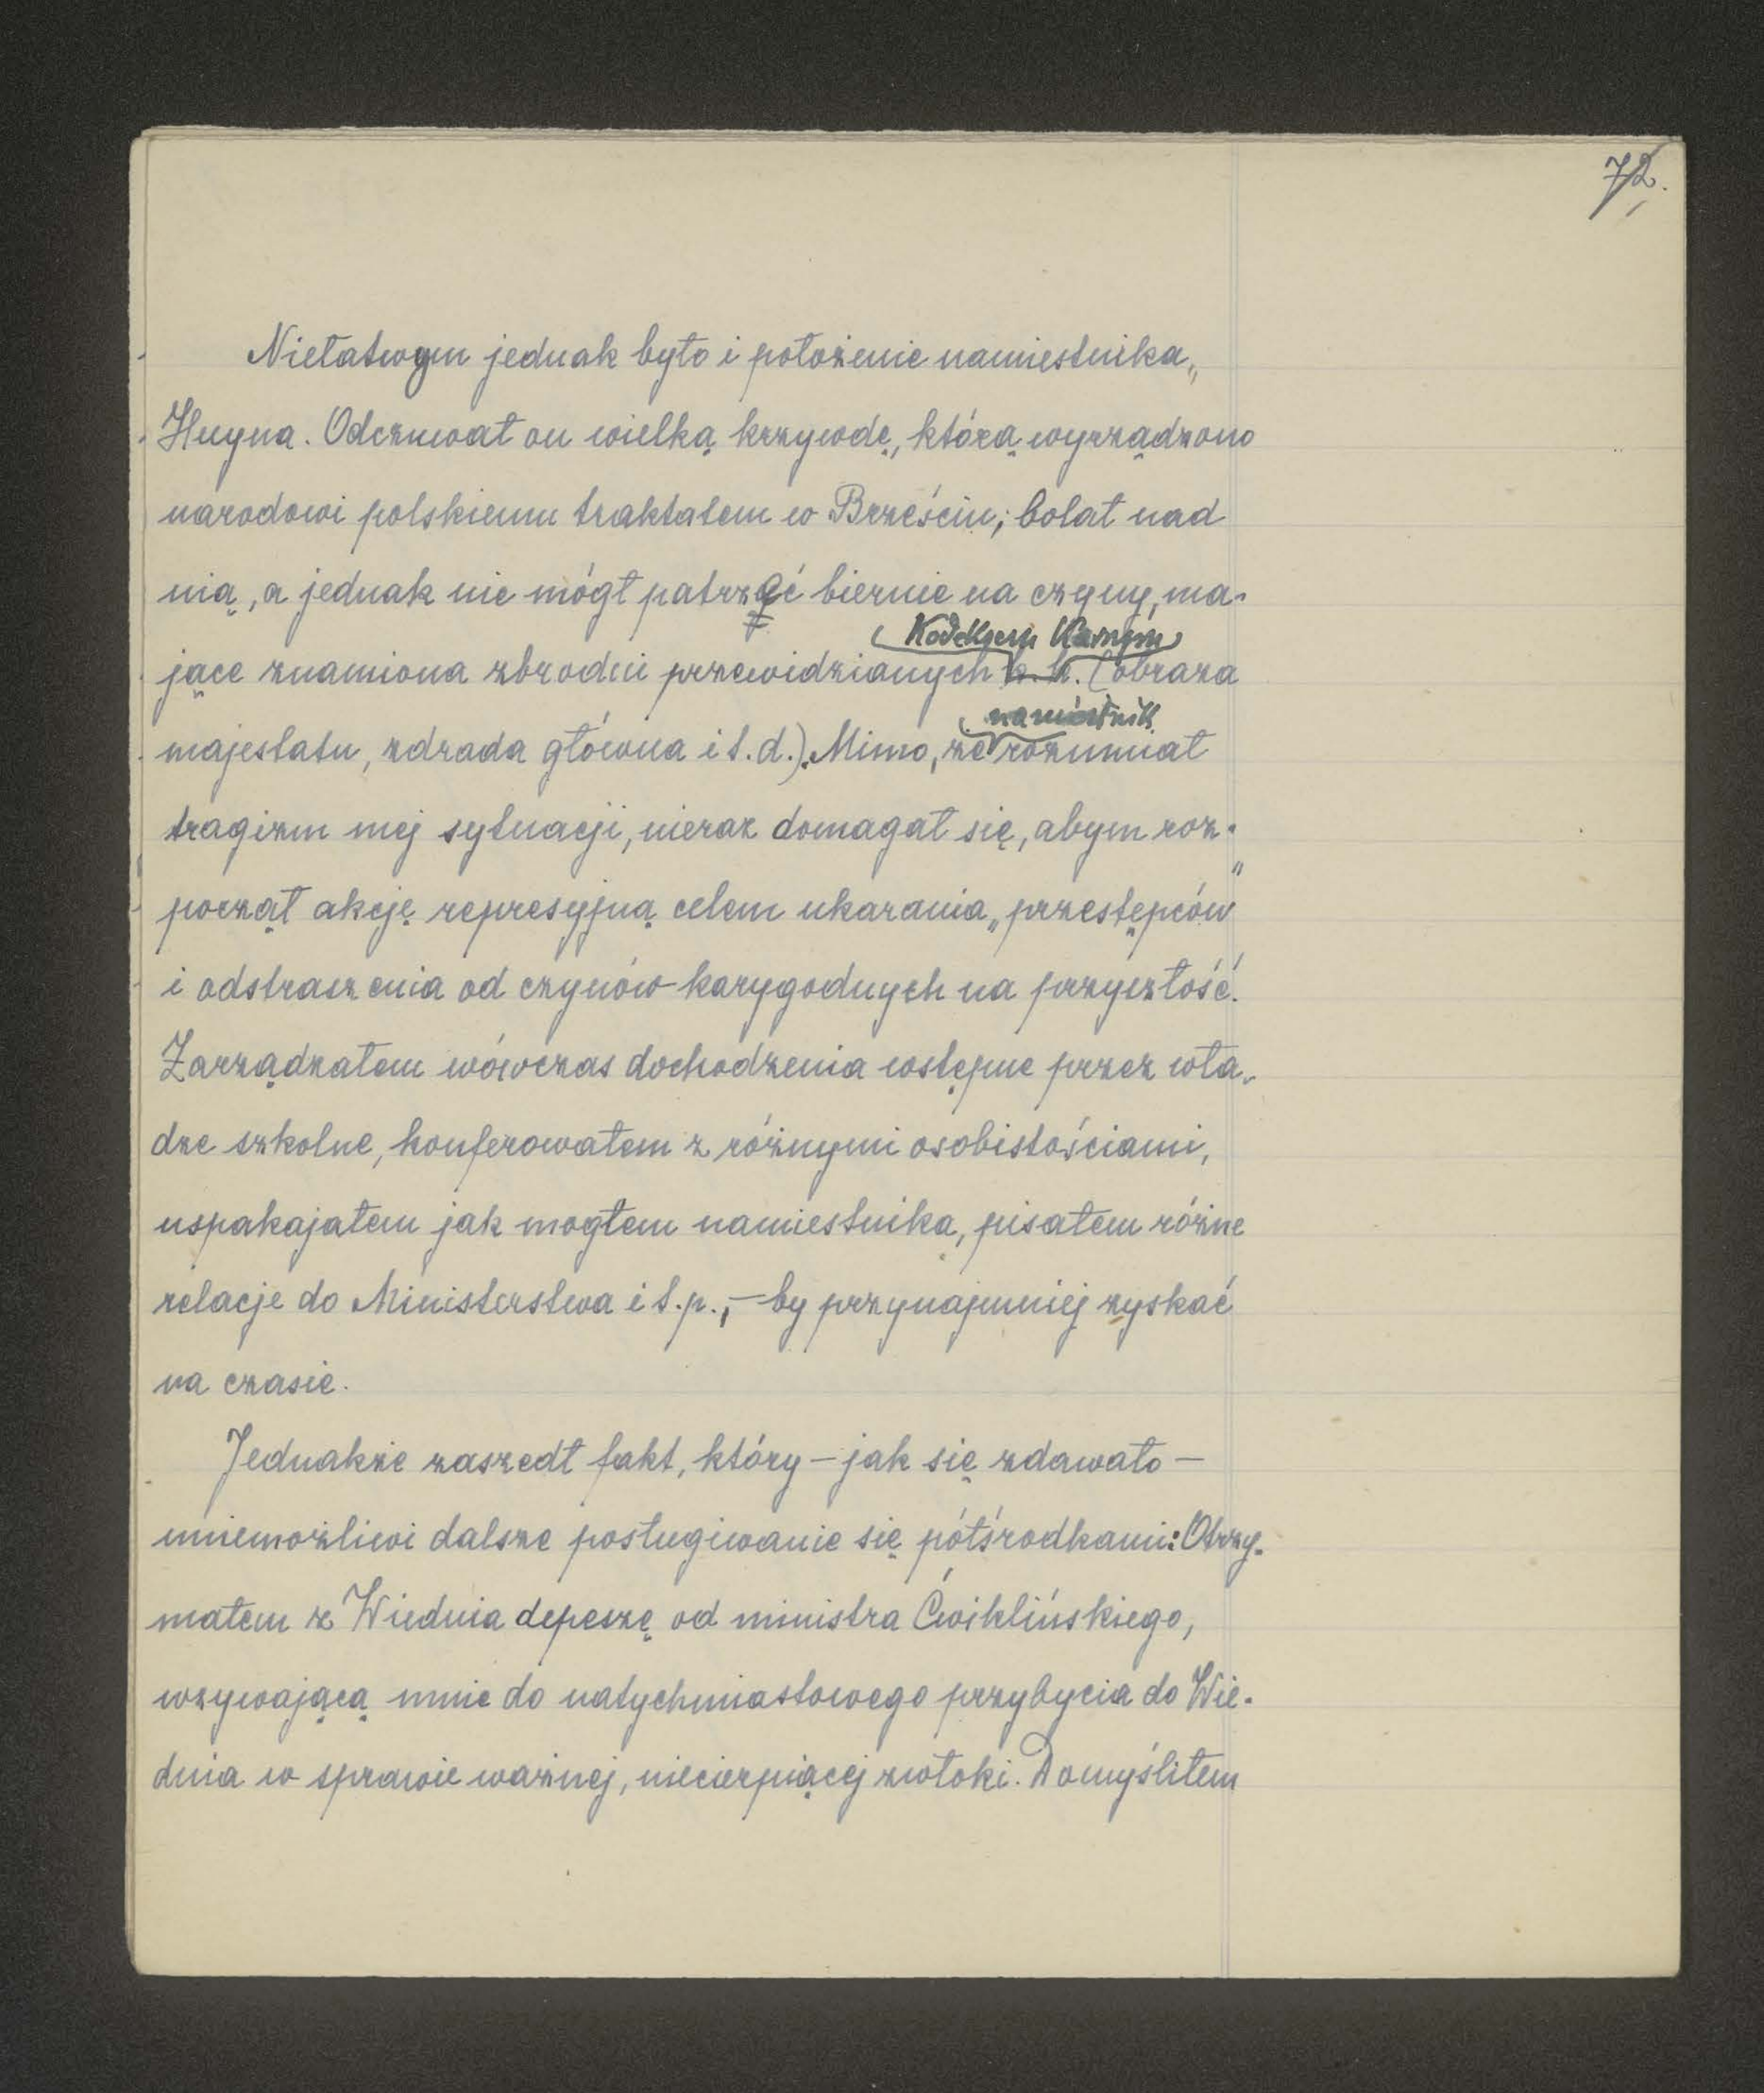 72.
Niełatwym jednak było i położenie namiestnika
Huyna. Odczuwał on wielką krzywdę, którą wyrządzono
narodowi polskiemu traktatem w Brześciu; bolał nad
nią, a jednak nie mógł patrzeć biernie na czyny, ma-
Kodeksem Karnym
jące znamiona zbrodni przewidzianych k. k. (obraza
namiestnik
majestatu, zdrada główna i t. d.). Mimo, że rozumiał
tragizm mej sytuacji, nieraz domagał się, abym roz-
począł akcję represyjną celem ukarania „przestępców”
i odstraszenia od czynów karygodnych na przyszłość.
Zarządzałem wówczas dochodzenia wstępne przez wła-
dze szkolne, konferowałem z różnymi osobistościami,
uspakajałem jak mogłem namiestnika, pisałem różne
relacje do Ministerstwa i t. p., – by przynajmniej zyskać
na czasie.
Jednakże zaszedł fakt, który – jak się zdawało –
uniemożliwi dalsze posługiwanie się półśrodkami: Otrzy-
małem z Wiednia depeszę od ministra Ćwiklińskiego,
wzywającą mnie do natychmiastowego przybycia do Wie-
dnia w sprawie ważnej, niecierpiącej zwłoki. Domyśliłem